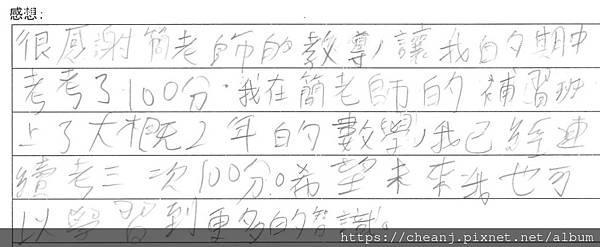 感想:
很感謝簡老師的教導,讓我的期中
考考了100分。我在簡老師的補習班
上了大概2年的數學,我已經連
續考三次100分。希望未來我也可
以學習到更多的智識。
https://cheanj.pixnet.net/album